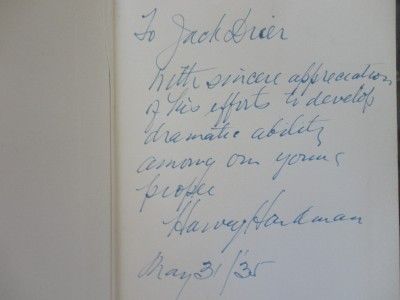 To Jack Drier
with sincere appreciation
of his efforts to develop
dramatic ability
among our young
people
Harvey Harkman
May 31/'35